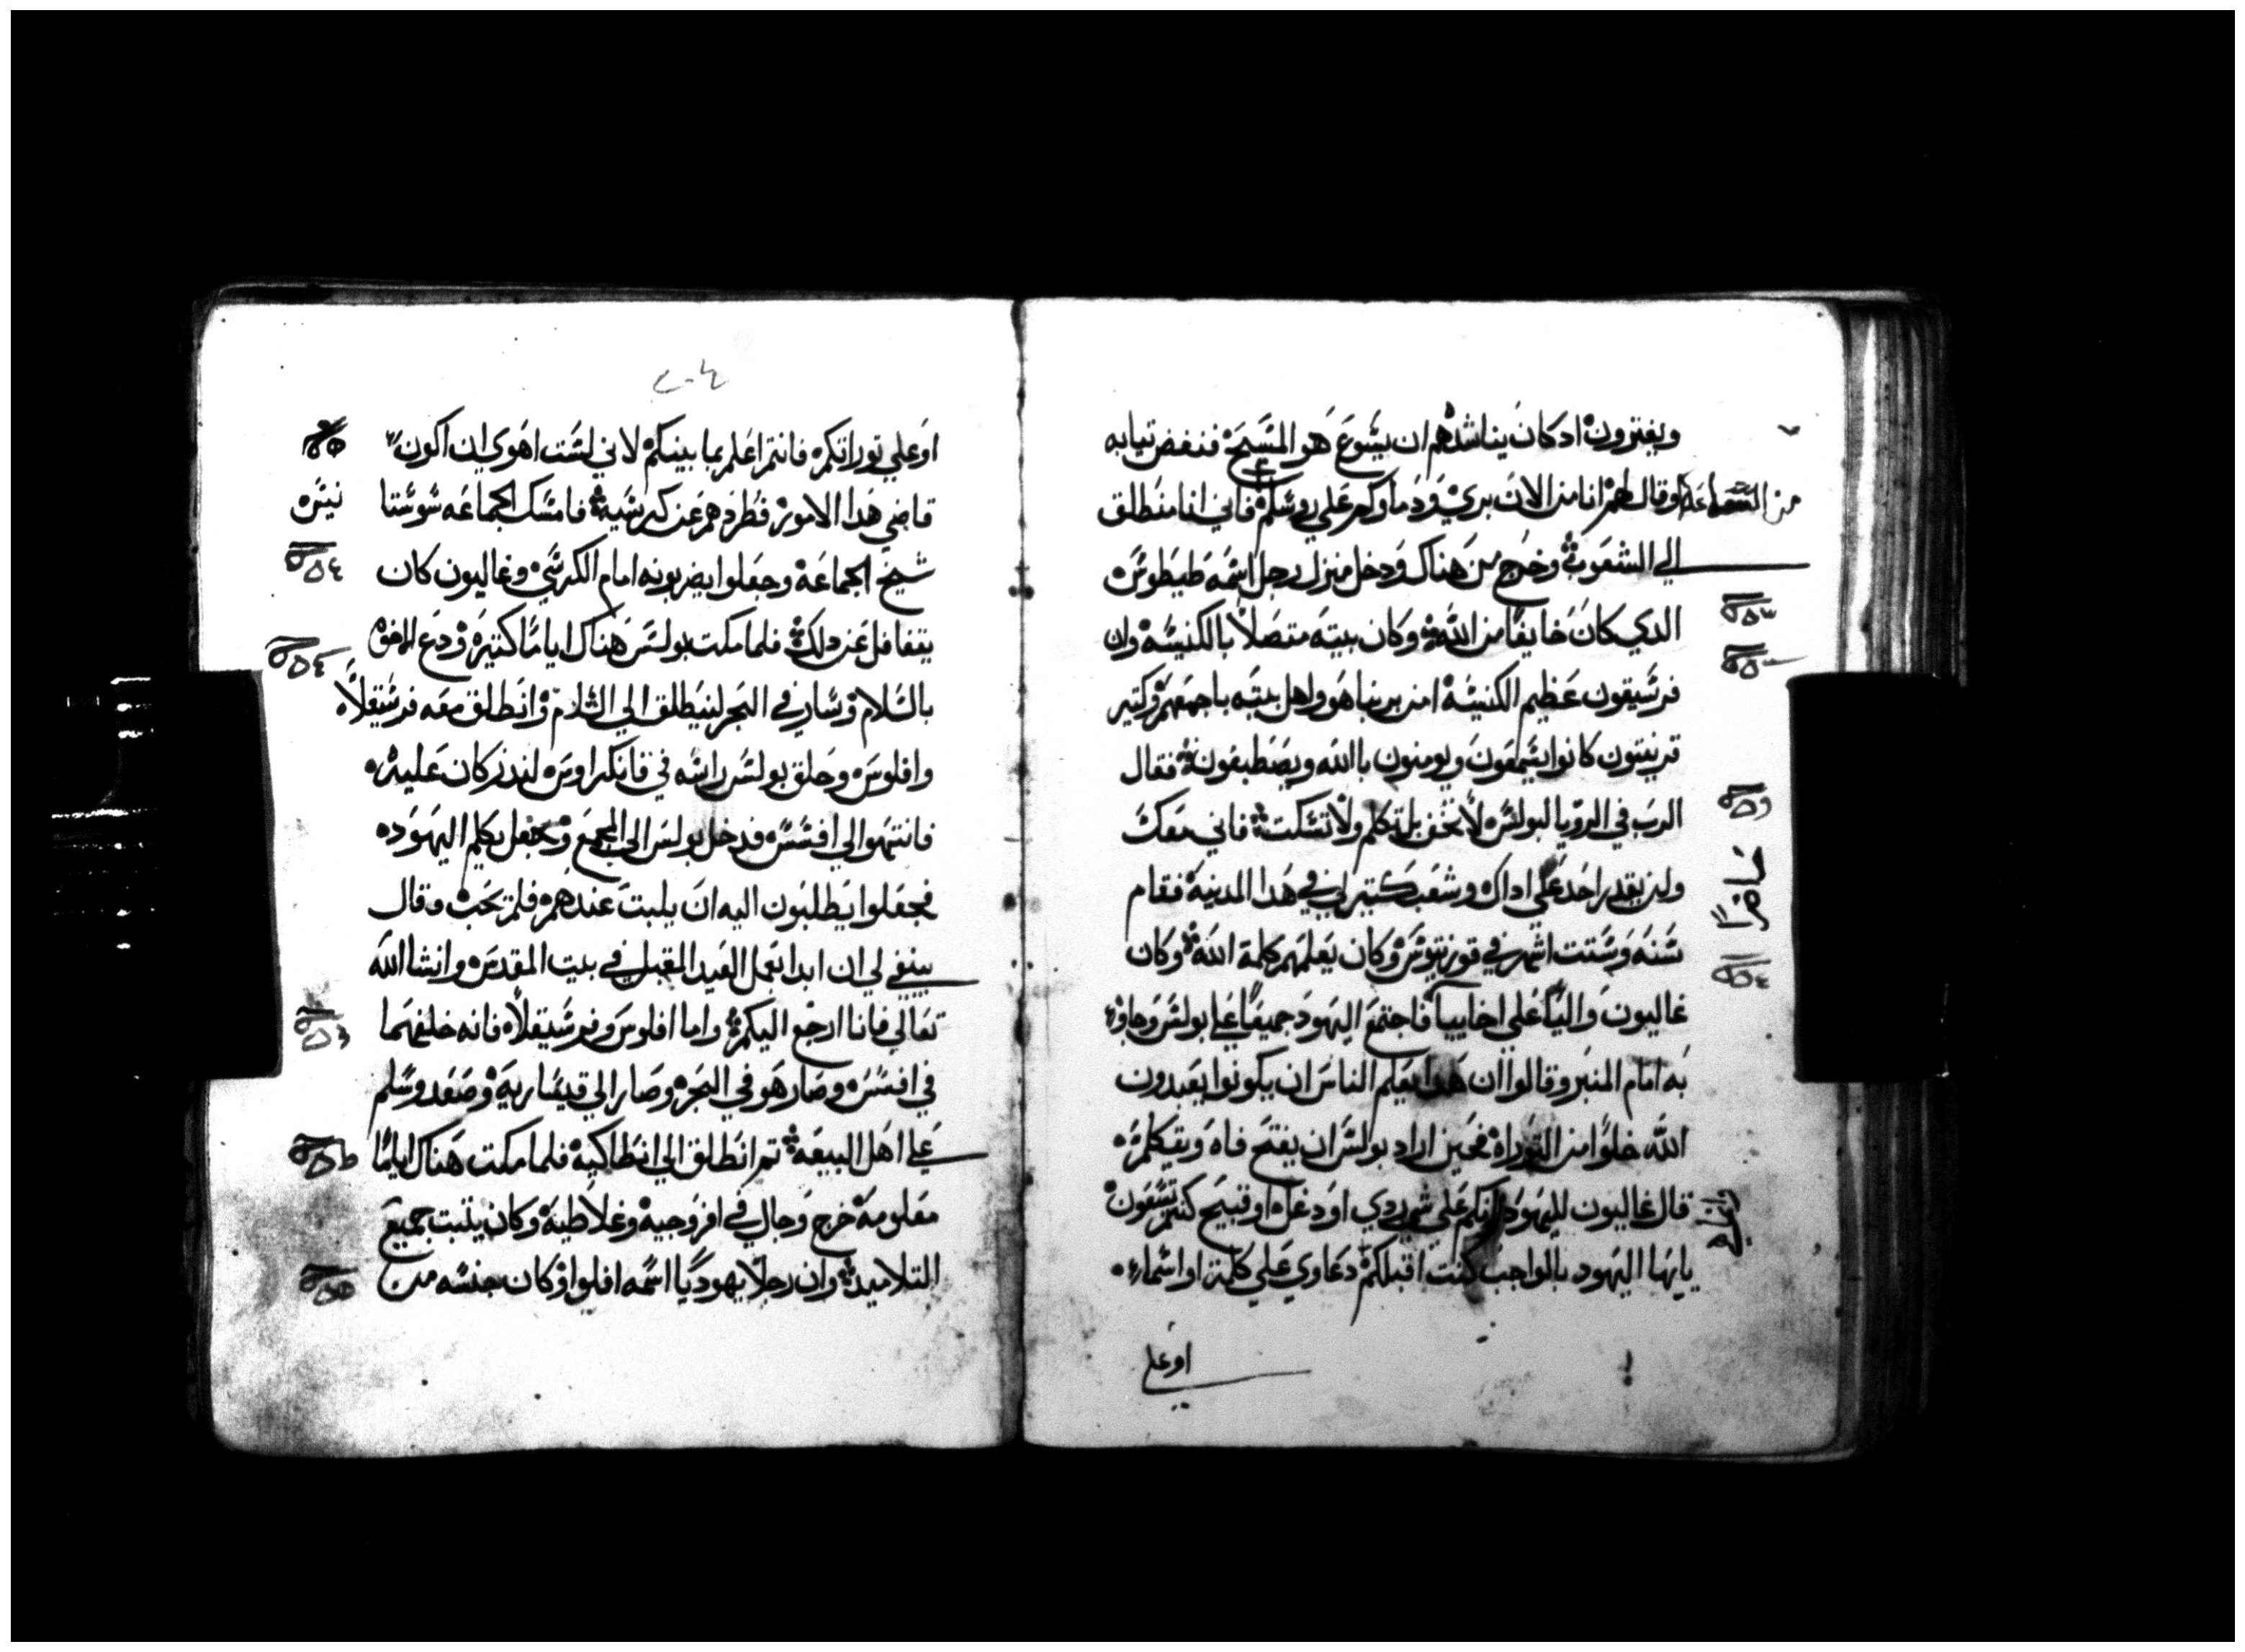 ويفترون اد كان يناشدهم ان يشوع هو المسيح فنفض تيابه
وقال لهم انا من الان بري ودماوكم على روسكم فاني انا منطلق
الي الشعوب وخرج من هناك ودخل منزل رجل اسمه طيطوس
الدي كان خايفا من الله وكان بيته متصلا بالكنيسه وان
قرسيقون عظيم الكنيسه امن بربنا هو واهل بيته باجمعهم وكتير
قرنتيون كانوا يسمعون ويومنون باالله ويصطبغون فقال
الرب في الرويا لبولس لا تخف بل تكلم ولا تسكت فاني معك
ولن يقدر احد علي اداك وشعب كتير لي في هدا المدينة فقام
سنه وستت اشهر في قورنتوس وكان يعلمهم كلمة الله وكان
غاليون واليا علي اخاييا فاجتمع اليهود جميعا علي بولس وجاوا
به امام المنبر وقالوا ان هدا يعلم الناس ان يكونوا يعبدون
الله خلوا من التوراة فحين اراد بولس ان يفتح فاه ويتكلم
قال غاليون لليهود علي شي ردي او دغل او قبيح كنتم تسعون
يايها اليهود بالواجب كنت اقبلكم دعاوي علي كلمة او اسماء
او علي
٢٠٤
او علي توراتكم فانتم اعلم بما بينكم لاني لست اهوي ان اكون
قاضي هدا الامور فطردهم عن كرسيه فامسك الجماعه سوستا
شيخ الجماعة وجعلوا يضربونه امام الكرسي وغاليون كان
يتغافل عن دلك فلما مكت بولس هناك اياما كتيره ودع الاخوه
بالسلام وسار في البحر لينطلق الي الشام وانطلق معه فرسقلا
وافلوس وحلق بولس راسه في قانكراوس لندر كان عليه
فانتهوا الي افسس فدخل بولس الي المجمع وجعل يكلم اليهود
فجعلوا يطلبون اليه ان يلبت عندهم فلم يحب وقال
ينبغي لي ان ابدا بعمل العيد المقبل في بيت المقدس وانشا الله
تعالي فانا ارجع اليكم واما افلوس وفرسقلا فانه خلفهما
في افسس وصار هو في البحر وصار الي قيساريه وصعد وسلم
علي اهل البيعه تم انطلق الي انطاكيه فلما مكت هناك اياما
معلومة خرج وجال في افروجية وغلاطية وكان يتبت جميع
التلاميد وان رجلا يهوديا اسمه افلوا وكان جنسه من